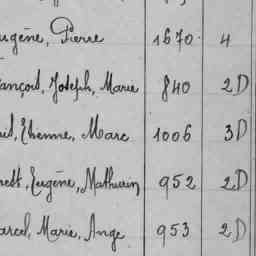 ugène, Pierre 1670. 4
ançois, Joseph, Marie 840 2D
Etienne, Marc 1006 3D
Eugène, Mathurin 952 2D
arcel, Marie, Ange 953 2D